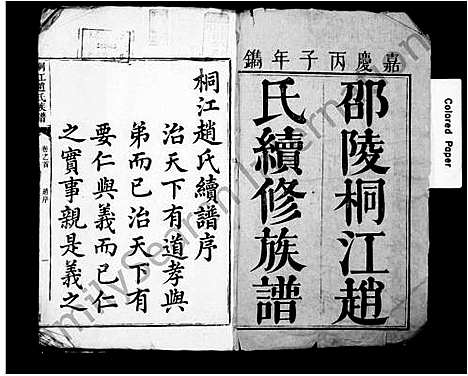 嘉慶丙子年鐫
邵陵桐江趙
氏續修族譜
桐江趙氏續譜序
治天下有道孝與
弟而已治天下有
要仁與義而已仁
之實事親是義之
桐江趙氏族譜
卷乙首
趙序
一
Colored Paper